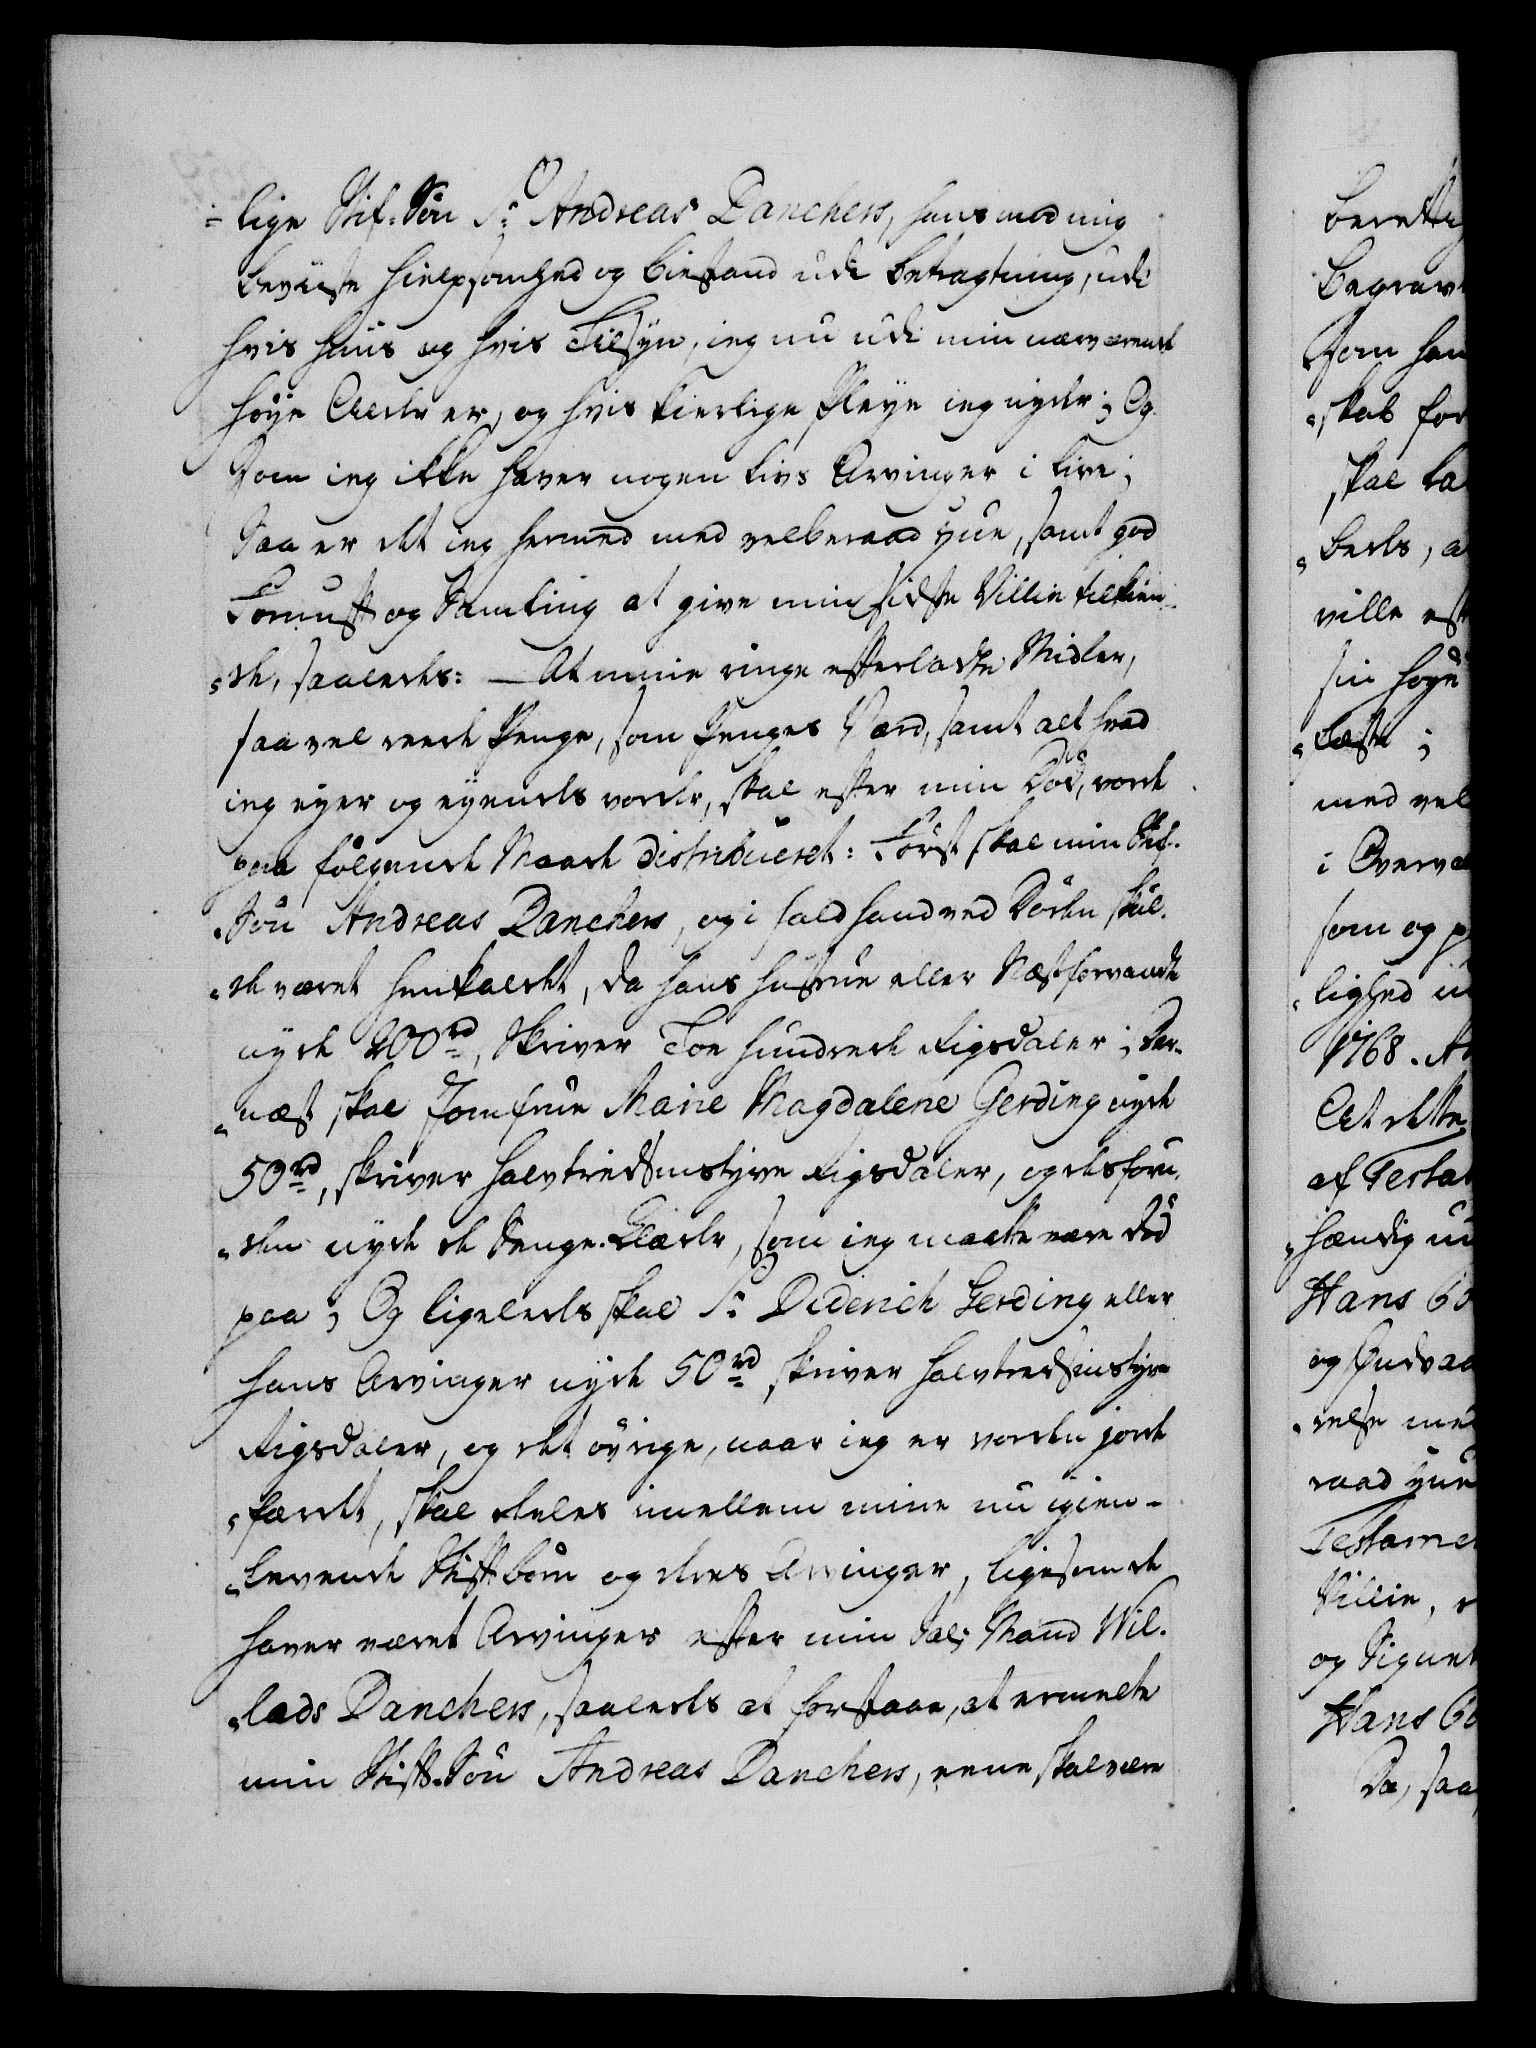 -lige Stif-Sön Sr Andreas Danchers, hans mod mig
beviiste hielpsomhed og biestand udi betragtning, udi
hvis huus og hvis Tilsyn, jeg nu udi min nærværende
høye Alder er, og hvis kierlige Pleye jeg nyder; Og
Som jeg ikke haver nogen livs Arvinger i live;
Saa er det jeg hermed med velberaad hue, samt god
Fornuft og Samling at give min sidste Villie tilkien-
de, saaledes: At mine ringe efterladte Midler,
saavel reede Penge, som Penges Værd, samt alt hvad
jeg eyer og eyendes vorder, skal efter min Död, vorde
paa følgende Maade distribueret: Først skal min Stif-
Sön Andreas Danchers, og i fald hand ved Döden skul-
de været henkaldet, da hans hustrue eller Næstforvandte
nyde 200rd, Skriver Toe hundrede Rigsdaler; Der-
næst skal Jomfrue Marie Magdalene Gerding nyde
50rd, skriver halvtredsindstyve Rigsdaler, og desforu-
den nyde de Senge-Klæder, som jeg maatte være död
paa; Og ligeledes skal Sr Diderich Gerding eller
hans Arvinger nyde 50rd skriver halvtredsindstyve
Rigsdaler, og det övrige, naar jeg er vorden jorde-
færdet, skal deeles imellem mine nu igien-
levende Stifbörn og deres Arvinger, ligesom de
haver været Arvinger efter min Sal: Mand Wil-
lads Danchers, saaledes at forstaae, at ermeldte
min Stif-Sön Andreas Danchers, eene skal være
beretti
Begrav
som han
skab for
skal la
beds, a
ville eft
sin høye
beste;
med vel
i Overvæ
som og p
lighed u
1768. A
At dette
af Testa
hændig un
Hans
og
velse med
raad hue
Testame
Villie,
og Signet
Hans
Da, saa